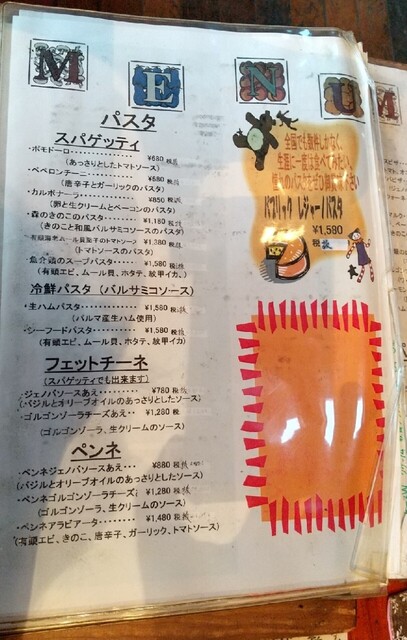 MENU
パスタ
スパゲッティ
・ポモドーロ・・・・・・・・・・・ ¥680 税抜
(あっさりとしたトマトソース)
・ペペロンチーニ・・・・・・・・ ¥680 税抜
(唐辛子とガーリックのパスタ)
・カルボナーラ・・・・・・・・・ ¥850 税抜
(卵と生クリームとベーコンのパスタ)
・森のきのこのパスタ・・・・ ¥1,180 税抜
(きのこと和風バルサミコソースのパスタ)
¥1,380 税抜
(トマトソースのパスタ)
・魚介類のスープパスタ・・ ¥1,580 税抜
(有頭エビ、ムール貝、ホタテ、紋甲イカ)
冷鮮パスタ (バルサミコソース)
・生ハムパスタ・・・・・・・・・ ¥1,580 税抜
(パルマ産生ハム使用)
・シーフードパスタ・・・・・・ ¥1,580 税抜
(有頭エビ、ムール貝、ホタテ、紋甲イカ)
フェットチーネ
(スパゲッティでも出来ます)
・ジェノバソースあえ・・・・・・ ¥780 税抜
(バジルとオリーブオイルのあっさりとしたソース)
・ゴルゴンゾーラチーズあえ・・ ¥1,280 税抜
(ゴルゴンゾーラ、生クリームのソース)
ペンネ
・ペンネジェノバソースあえ・・・ ¥880 税抜
(バジルとオリーブオイルのあっさりとしたソース)
・ペンネゴルゴンゾーラチーズ ¥1,280 税抜
(ゴルゴンゾーラ、生クリームのソース)
・ペンネアラビアータ・・・・・・・・ ¥1,480 税抜
(有頭エビ、きのこ、唐辛子、ガーリック、トマトソース)
全国でも数件しかなく、
生涯に一度は食べてみたい、
パブリック レジャーノパスタ
¥1,580
税抜